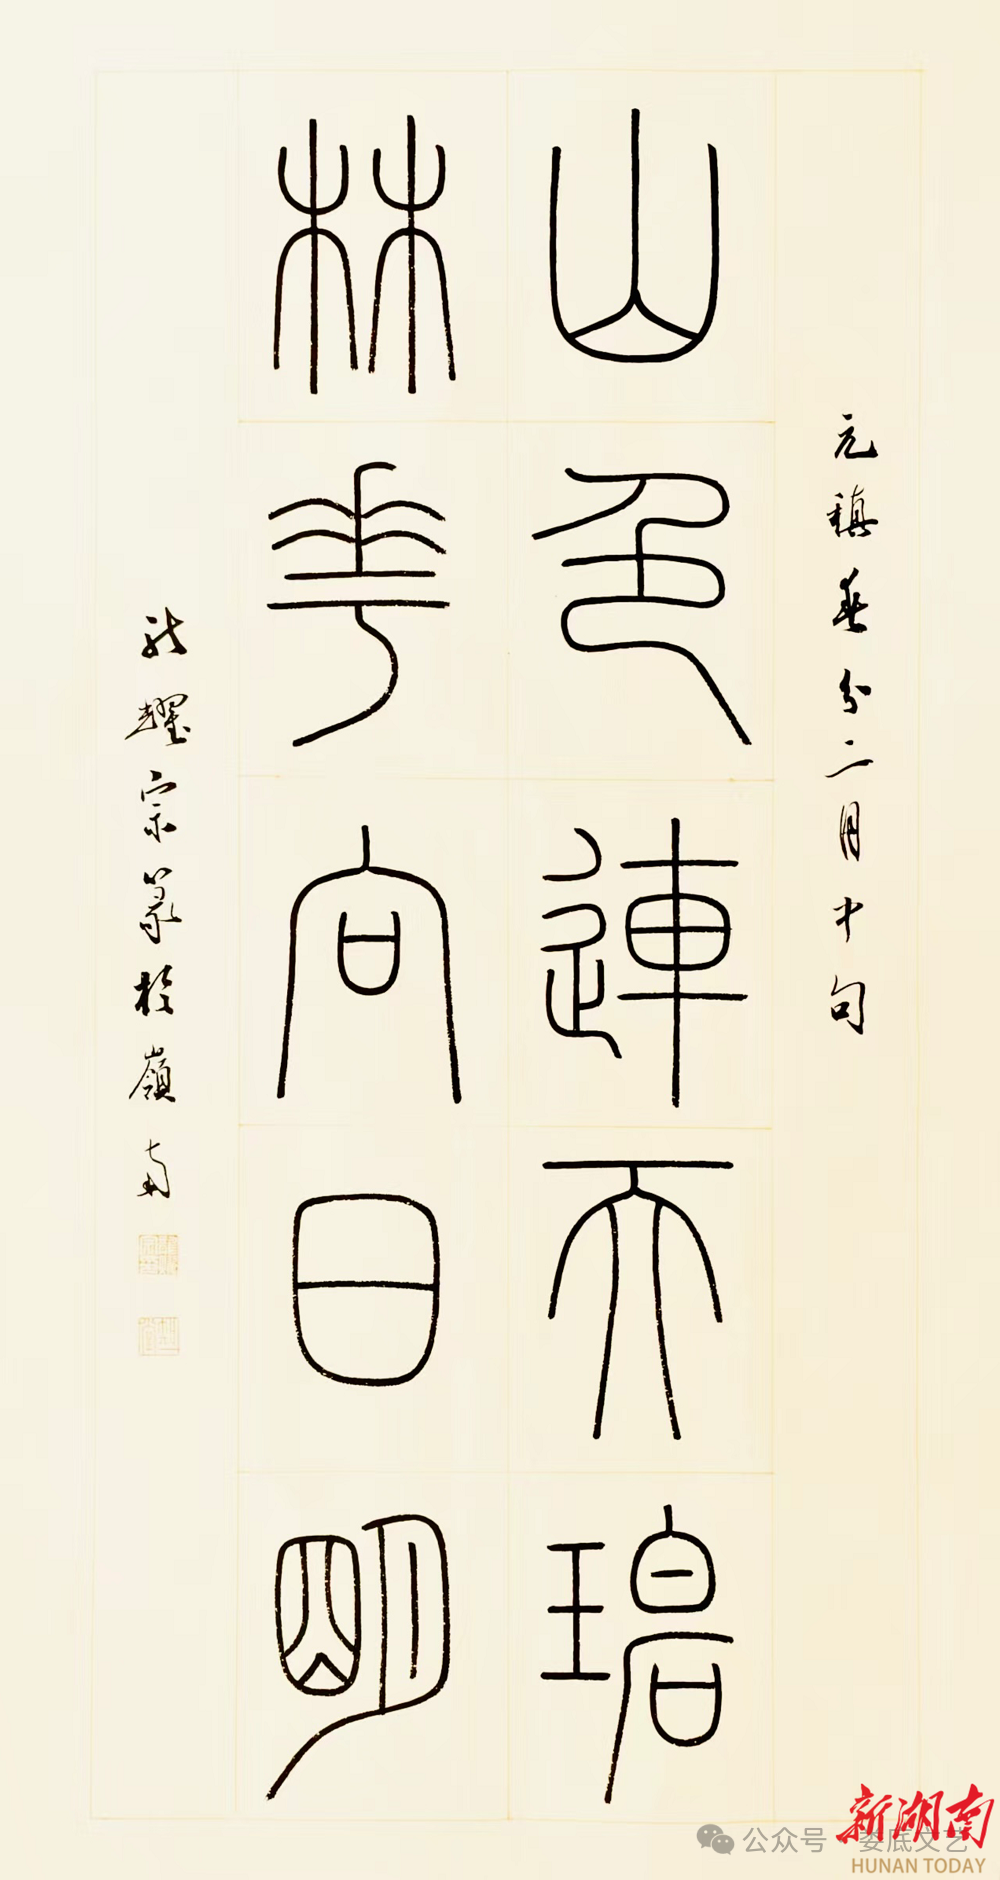 元稹春分二月中句
山色連天碧
林花向日明
龍耀宗篆於嶺南
公众号·娄底文艺
新湖南
HUNAN TODAY